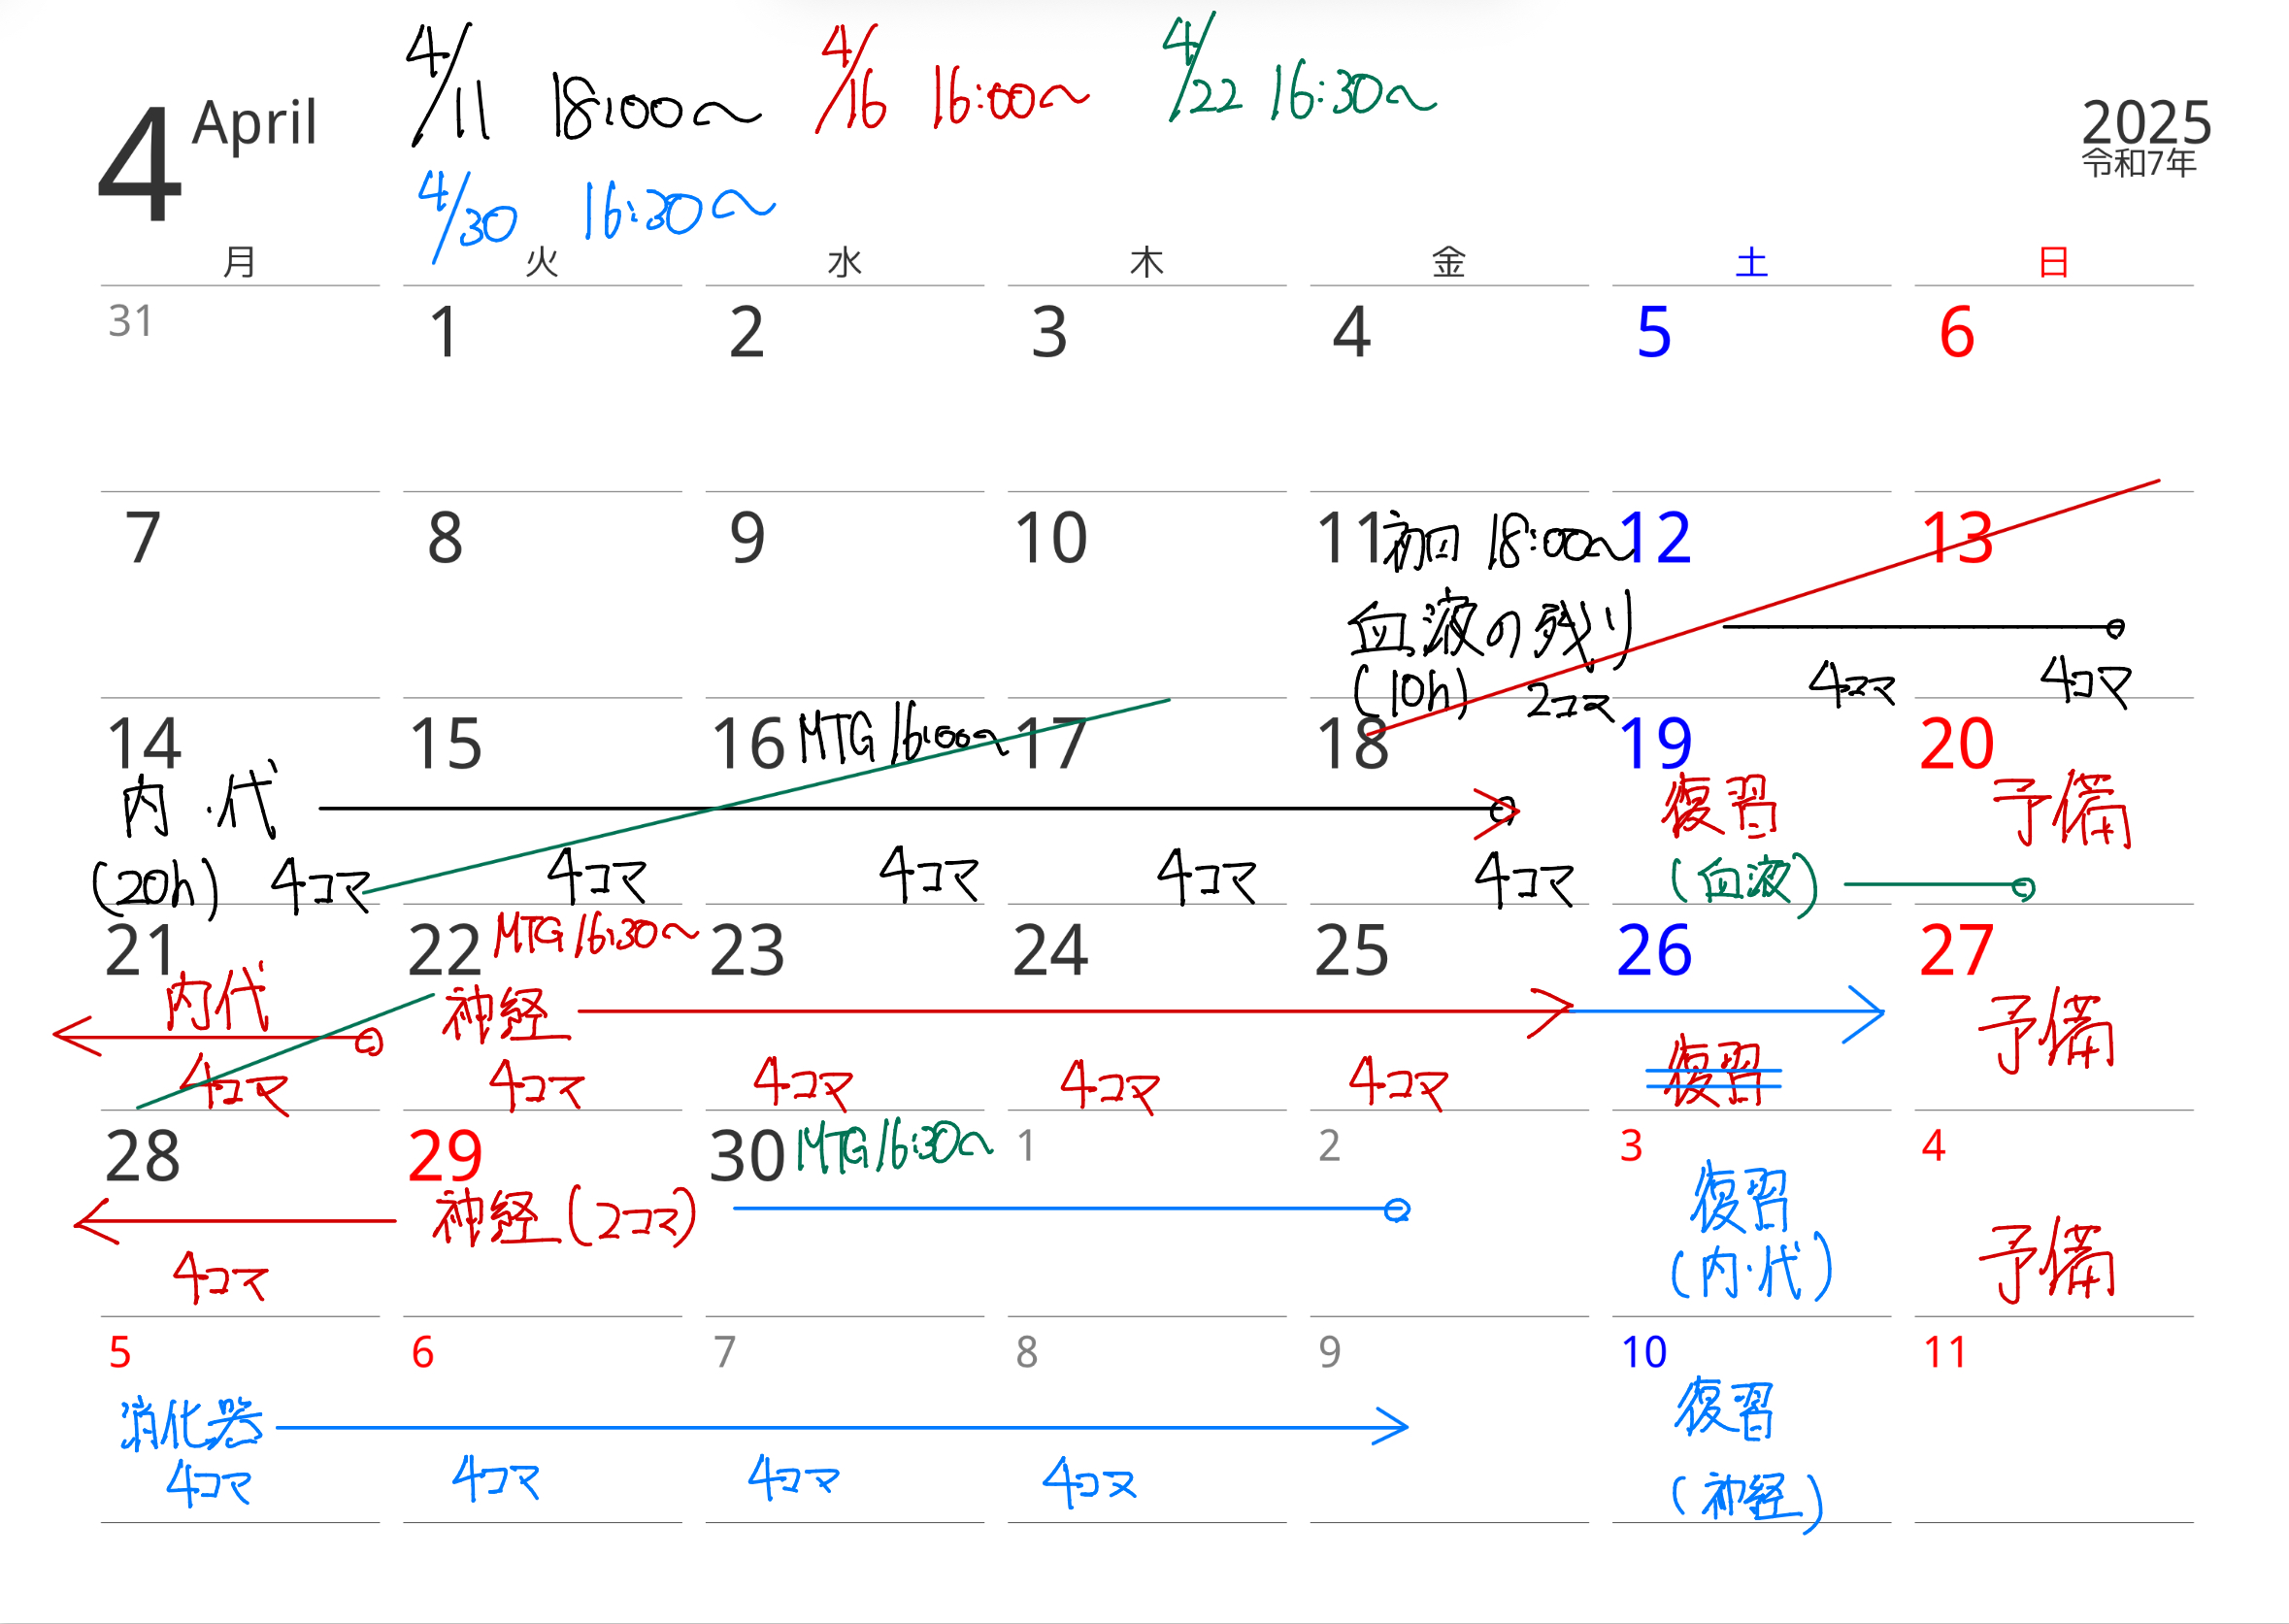 4 April
4/11 18:00〜 4/16 16:00〜 4/22 16:30〜
4/30 16:30〜
2025
令和7年
月 火 水 木 金 土 日
31 1 2 3 4 5 6
7 8 9 10 11 初回 18:00〜 12 13
血液の残り
(10h) 2コマ 4コマ 4コマ
14 15 16 MTG 16:00〜 17 18 19 20
内・代 復習 予備
(20h) 4コマ 4コマ 4コマ 4コマ 4コマ (血液)
21 22 MTG 16:30〜 23 24 25 26 27
内代 神経 予備
4コマ 4コマ 4コマ 4コマ 4コマ 復習
28 29 30 MTG 16:30〜 1 2 3 4
神経(2コマ) 復習
4コマ (内・代) 予備
5 6 7 8 9 10 11
消化器 復習
4コマ 4コマ 4コマ 4コマ (神経)